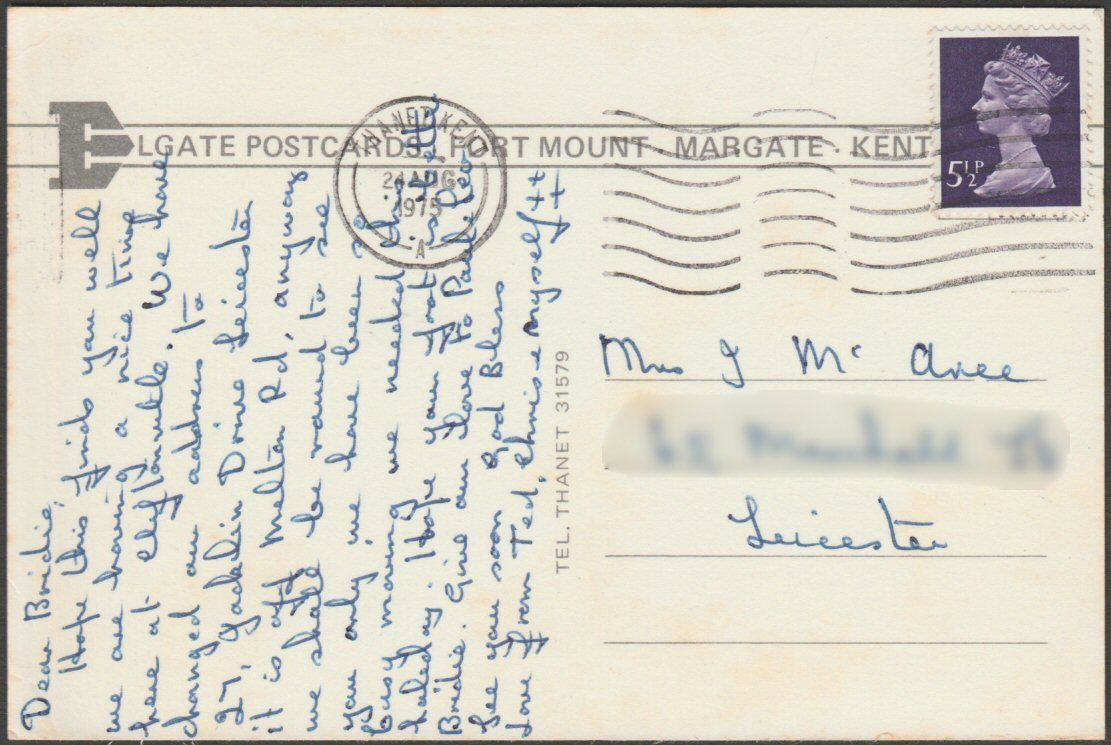 ELGATE POSTCARDS · FORT MOUNT · MARGATE · KENT
THANET KENT
24 AUG
1975
A
5½P
Dear Bridie,
Hope this finds you well
we are having a nice time
here at Cliftonville. We have
changed our address to
27, Leicester Drive
it is off Melton Rd, anyway
we shall be round to see
you only we have been so
busy moving we needed the
holiday. Hope your foot is better
Bridie. Give our love to Paul & Leo
See you soon God Bless
Love from Ted, Chris & myself ++
++
TEL. THANET 31579
Mrs J Mc Avee
Leicester